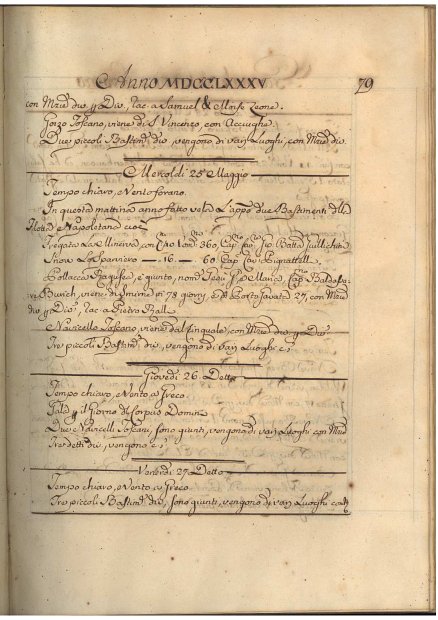 Anno MDCCLXXXV 79
con Mrzie div. p Div., rac. a Samuel & Leone.
Gozo Toscano, viene di S Vincenzo, con Acciughe.
Due piccoli Bastimti div. vengono di varj Luoghi, con Mrzie div.
Mercoldi 25 Maggio
Tempo chiaro, Vento forano.
In questa mattina anno fatto vela L'appo due Bastimenti della
Flotta Napoletana cioè
Fregata La Minerva con Cni 360, Cap Batta
Snow Lo Sparviero — 16 — 60 Cap Pignattelli
Pollacca Ragusea, è giunto, nomta S. Maria, Cap Baldassa-
re viene di Smirne in 78 giorni, e di Porto 27, con Mrzie
div. p Divi, rac. a Pietro Ball
Navicello Toscano, viene dal Finale, con Mrzie div. p Divi
Tre piccoli Bastimti div. vengono di varj Luoghi
Giovedi 26 Detto
Tempo chiaro, Vento a Greco
Gala p il Giorno di Corpus Domini
Due Navicelli Toscani, sono giunti, vengono di varj Luoghi con Mrzie
Tre detti div. vengono
Venerdi 27 Detto
Tempo chiaro, e Vento a Greco
Tre piccoli Bastimti div. sono giunti, vengono di varj Luoghi